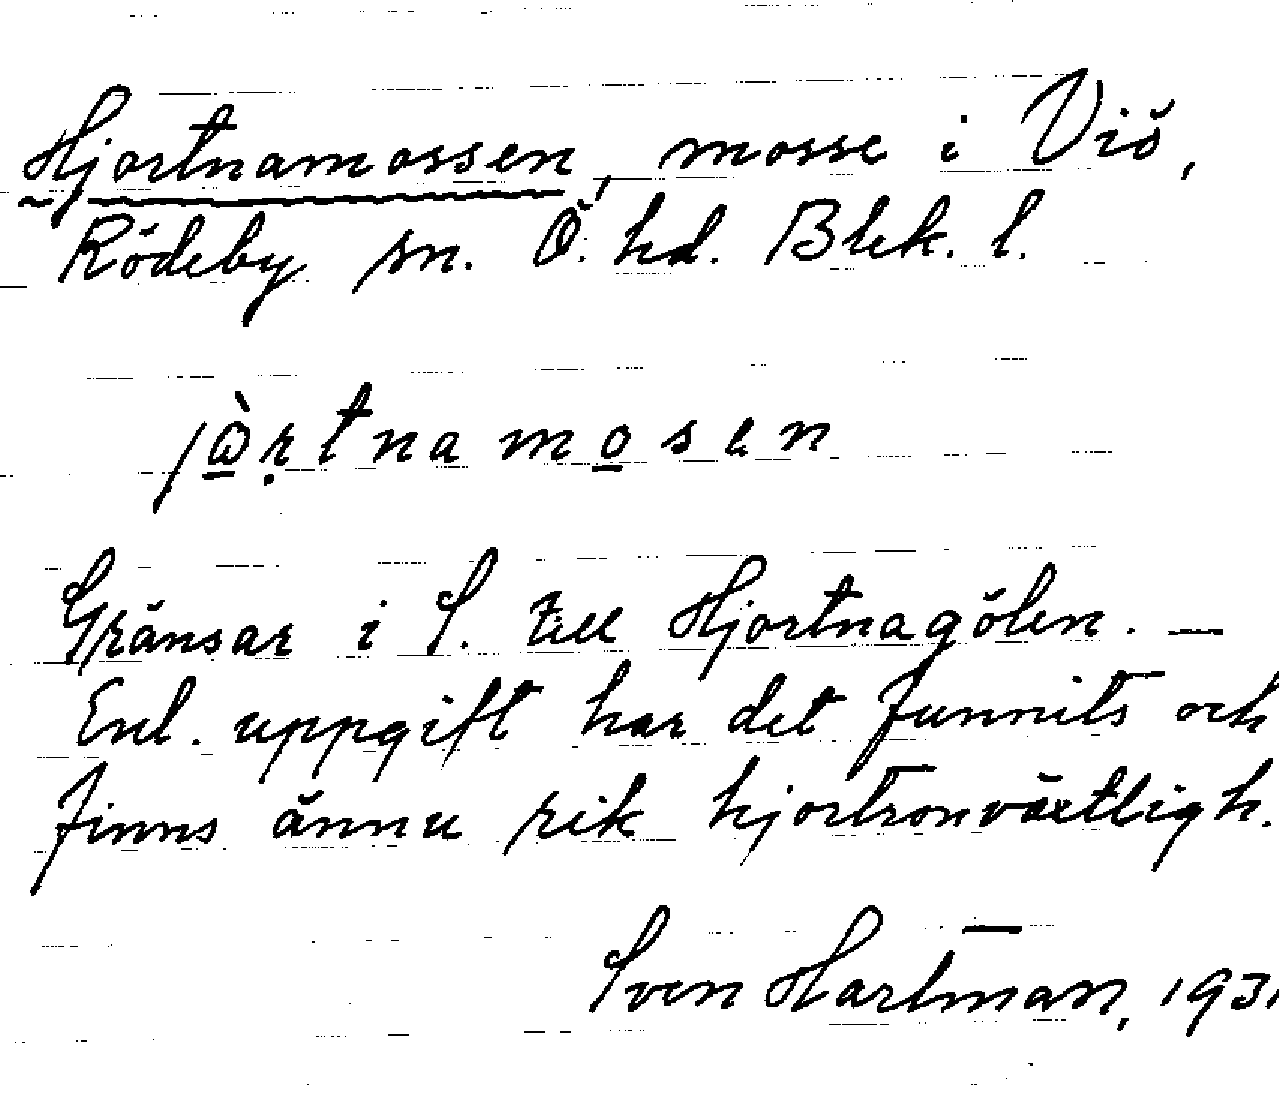 Hjortnamossen, mosse i Viö,
Rödeby sn. Ö. hd. Blek. l.
jò̱ṛtnamo̱sen
Gränsar i S. till Hjortnagölen. —
Enl. uppgift har det funnits och
finns ännu rik hjortronväxtligh.
Sven Hartman, 1931